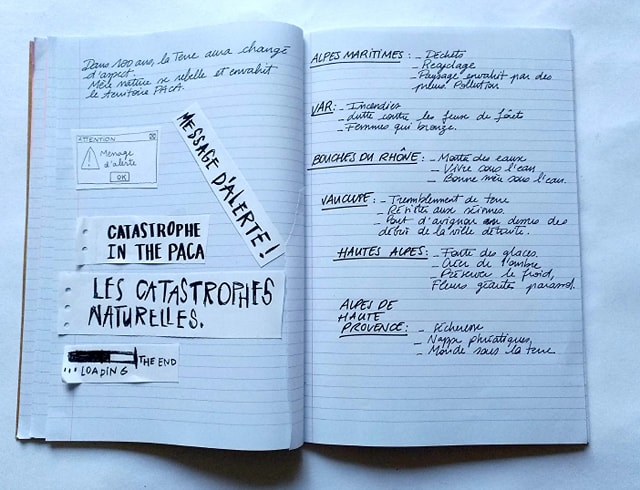 Dans 100 ans, la Terre aura changé
d'aspect.
Mère nature se rebelle et envahit
le territoire PACA.
ATTENTION
Message
d'alerte
OK
MESSAGE D'ALERTE!
CATASTROPHE
IN THE PACA
LES CATASTROPHES
NATURELLES.
THE END
... LOADING
ALPES MARITIMES: - Déchets
- Recyclage
- Paysage envahit par des
pneus. Pollution
VAR: - Incendies
- Lutte contre les feux de forêts
- Femmes qui bronze.
BOUCHES DU RHÔNE: - Montée des eaux
- Vivre sous l'eau
- Bonne mère sous l'eau.
VAUCLUSE: - Tremblement de terre
- Résister aux séismes.
- Pont d'avignon au dessus des
débris de la ville détruite.
HAUTES ALPES: - Fonte des glaces.
- Créer de l'ombre
- Préserver le froid,
Fleurs géante parasol.
ALPES DE
HAUTE
PROVENCE: - Sécheresse
- Nappe phréatiques,
- Monde sous la terre